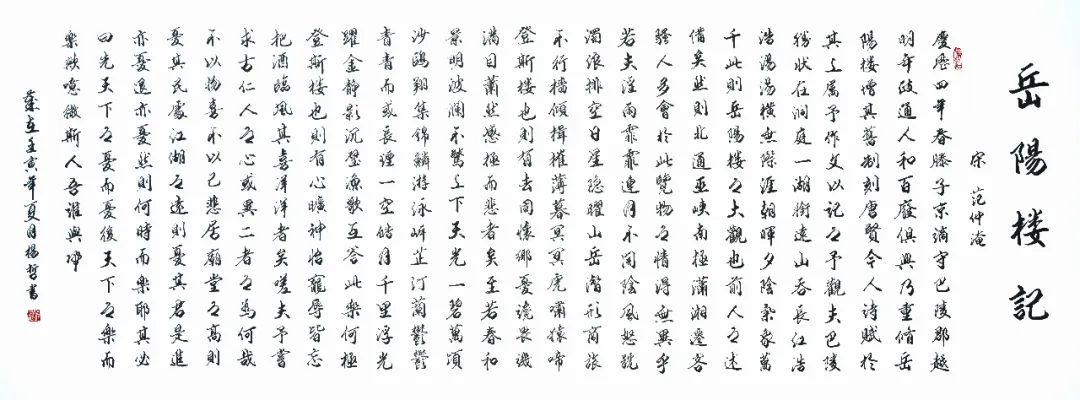 岳陽楼記
宋 范仲淹
慶歷四年春滕子京謫守巴陵郡越
明年政通人和百廢俱興乃重修岳
陽楼增其舊制刻唐賢今人詩賦於
其上屬予作文以記之予觀夫巴陵
勝狀在洞庭一湖銜遠山吞長江浩
浩湯湯橫無際涯朝暉夕陰氣象萬
千此則岳陽楼之大觀也前人之述
備矣然則北通巫峽南極瀟湘遷客
騷人多會於此覽物之情得無異乎
若夫淫雨霏霏連月不開陰風怒號
濁浪排空日星隱曜山岳潛形商旅
不行檣傾楫摧薄暮冥冥虎嘯猿啼
登斯楼也則有去國懷鄉憂讒畏譏
滿目蕭然感極而悲者矣至若春和
景明波瀾不驚上下天光一碧萬頃
沙鷗翔集錦鱗游泳岸芷汀蘭鬱鬱
青青而或長煙一空皓月千里浮光
躍金靜影沉璧漁歌互答此樂何極
登斯楼也則有心曠神怡寵辱皆忘
把酒臨風其喜洋洋者矣嗟夫予嘗
求古仁人之心或異二者之為何哉
不以物喜不以己悲居廟堂之高則
憂其民處江湖之遠則憂其君是進
亦憂退亦憂然則何時而樂耶其必
曰先天下之憂而憂後天下之樂而
樂歟噫微斯人吾誰與歸
歲在壬寅年夏月楊哲書